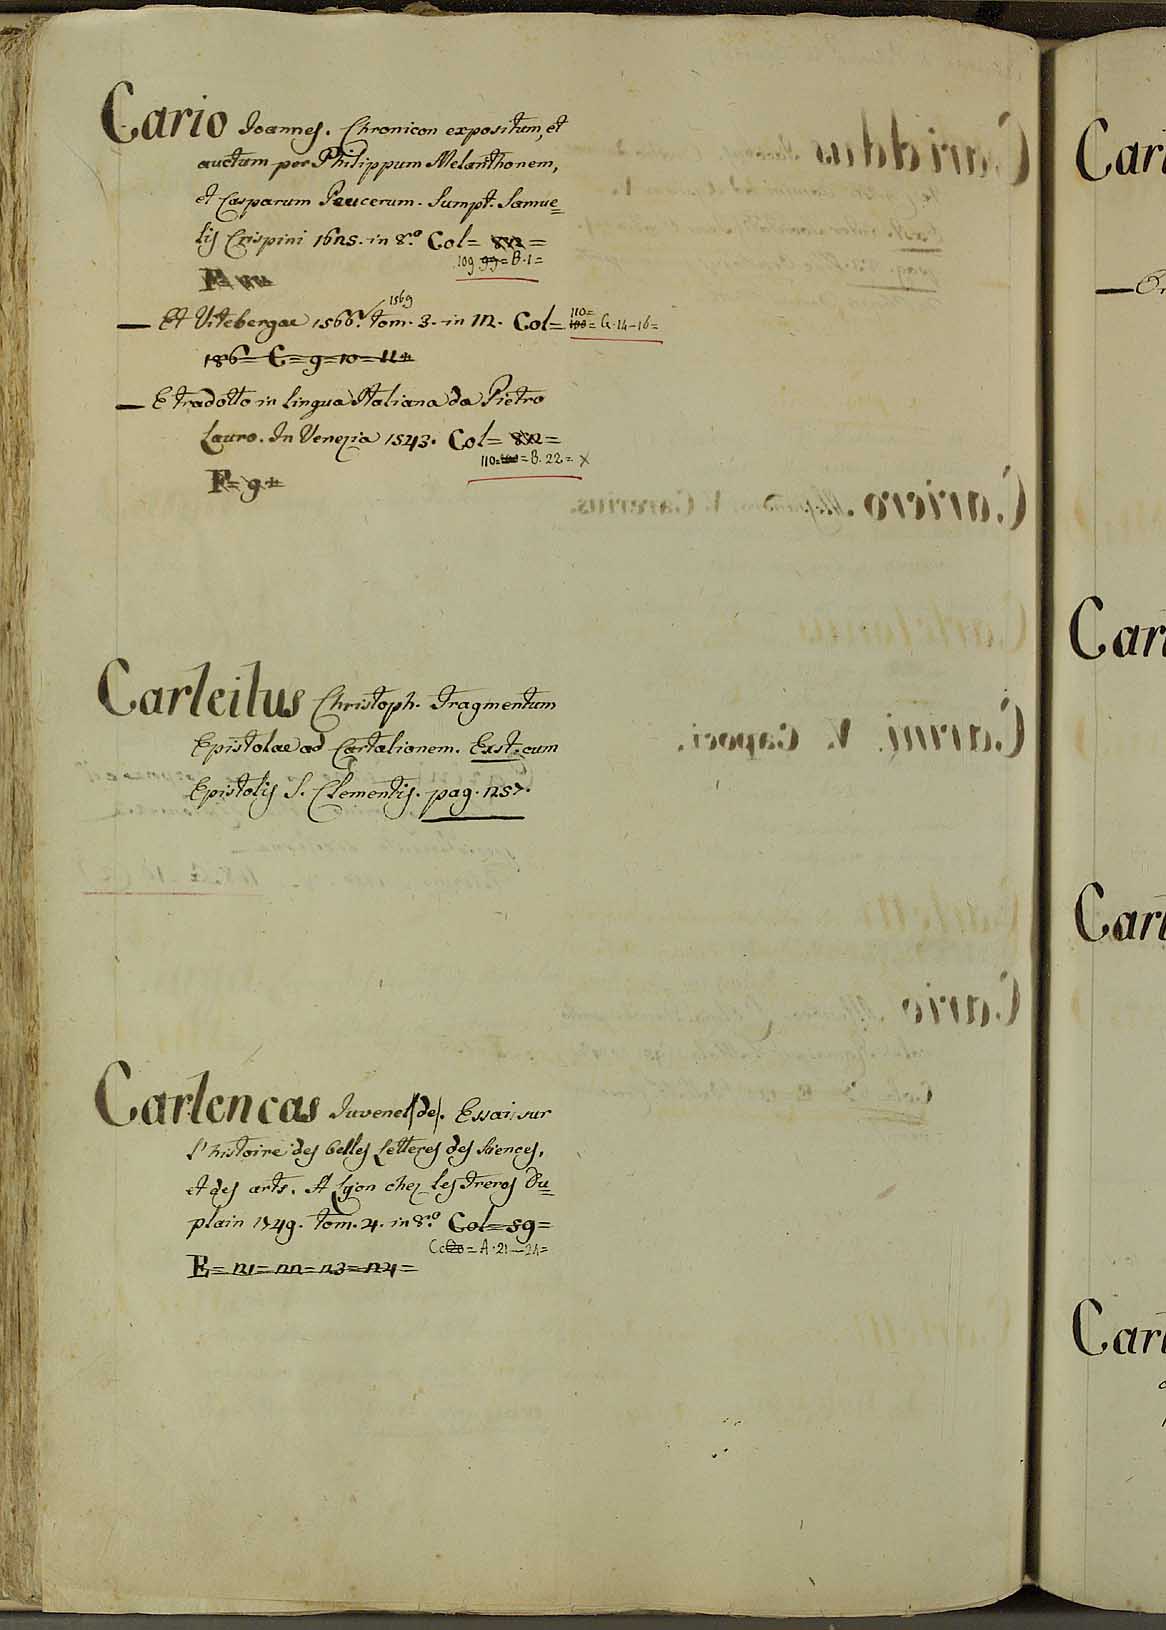 Cario Joannes. Chronicon expositum, et
auctum per Philippum Melanthonem,
et Casparum Peucerum. Sumpt. Samue=
lis Crispini 1625. in 8.º Col=
109 = B. 1 =
1569
— Et Vitebergae 1566. tom. 3. in 12. Col=
110= = G. 14-16=
186= C= 9=10=11
— E tradotto in lingua Italiana da Pietro
Lauro. In Venezia 1543. Col=
110= = B. 22= X
F= 9
Carleitus Christoph. Fragmentum
Epistolae ad Cartalionem. Exst. cum
Epistolis S. Clementis. pag. 257.
Carlencas Juvenel (de). Essai sur
l'histoire des belles Lettres des Siences,
et des arts. A Lyon chez les Freres Du=
plain 1749. tom. 4. in 8.º Col= 59=
= A. 21-24=
E= 21= 22= 23= 24=
Car
Car
Car
Car